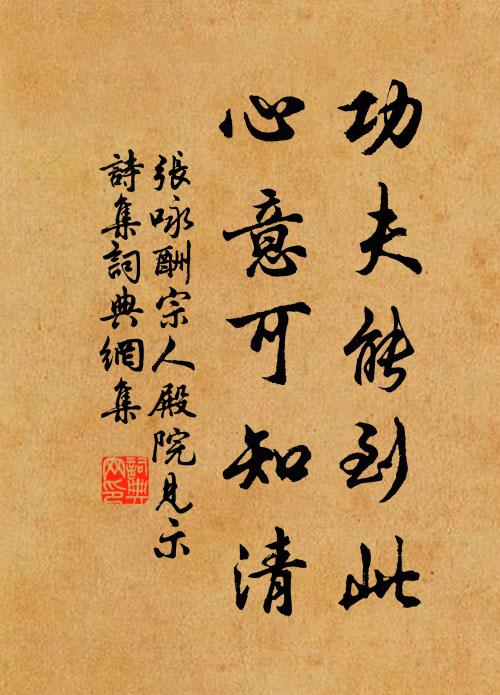 功夫能到此
心意可知清
張咏酬宗人殿院見示
詩集詞典網集
詞典